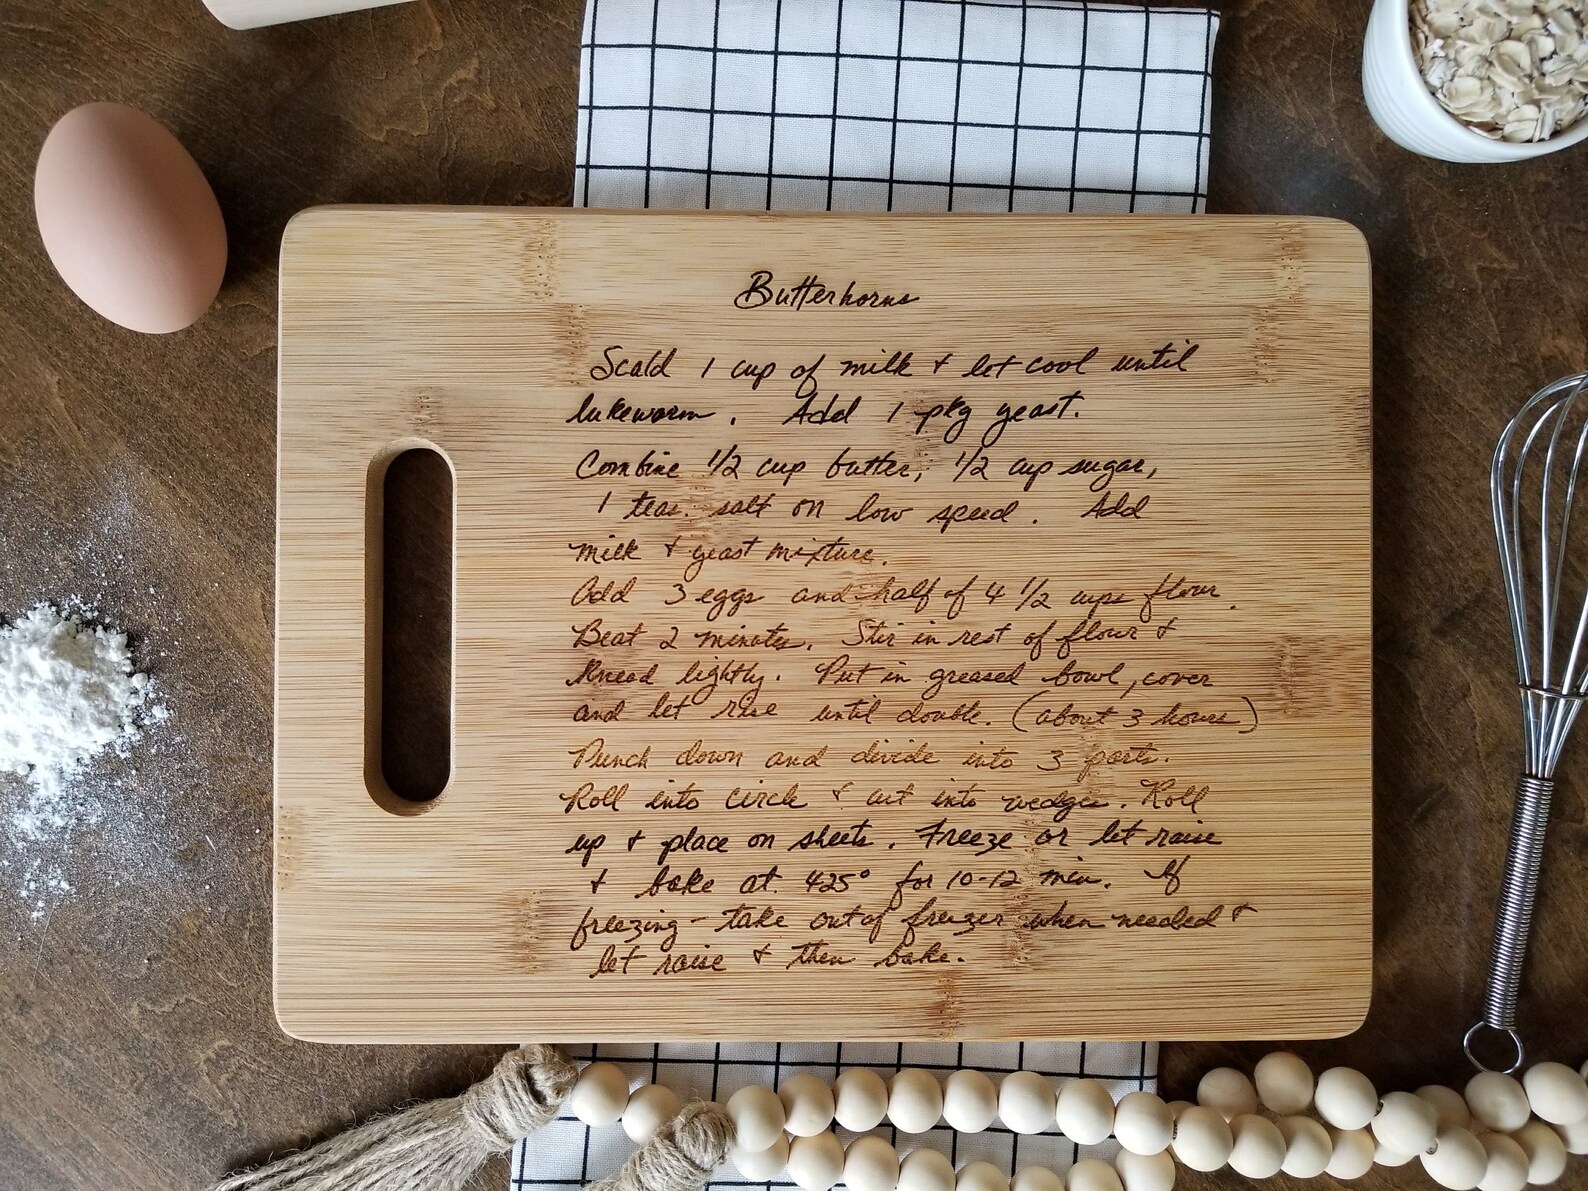 Butterhorns
Scald 1 cup of milk & let cool until
lukewarm. Add 1 pkg yeast.
Combine 1/2 cup butter, 1/2 cup sugar,
1 teas. salt on low speed. Add
milk & yeast mixture.
Add 3 eggs and half of 4 1/2 cups flour.
Beat 2 minutes. Stir in rest of flour &
knead lightly. Put in greased bowl, cover
and let rise until double. (about 3 hours)
Punch down and divide into 3 parts.
Roll into circle & cut into wedges. Roll
up & place on sheets. Freeze or let raise
& bake at 425° for 10-12 min. If
freezing - take out of freezer when needed &
let raise & then bake.